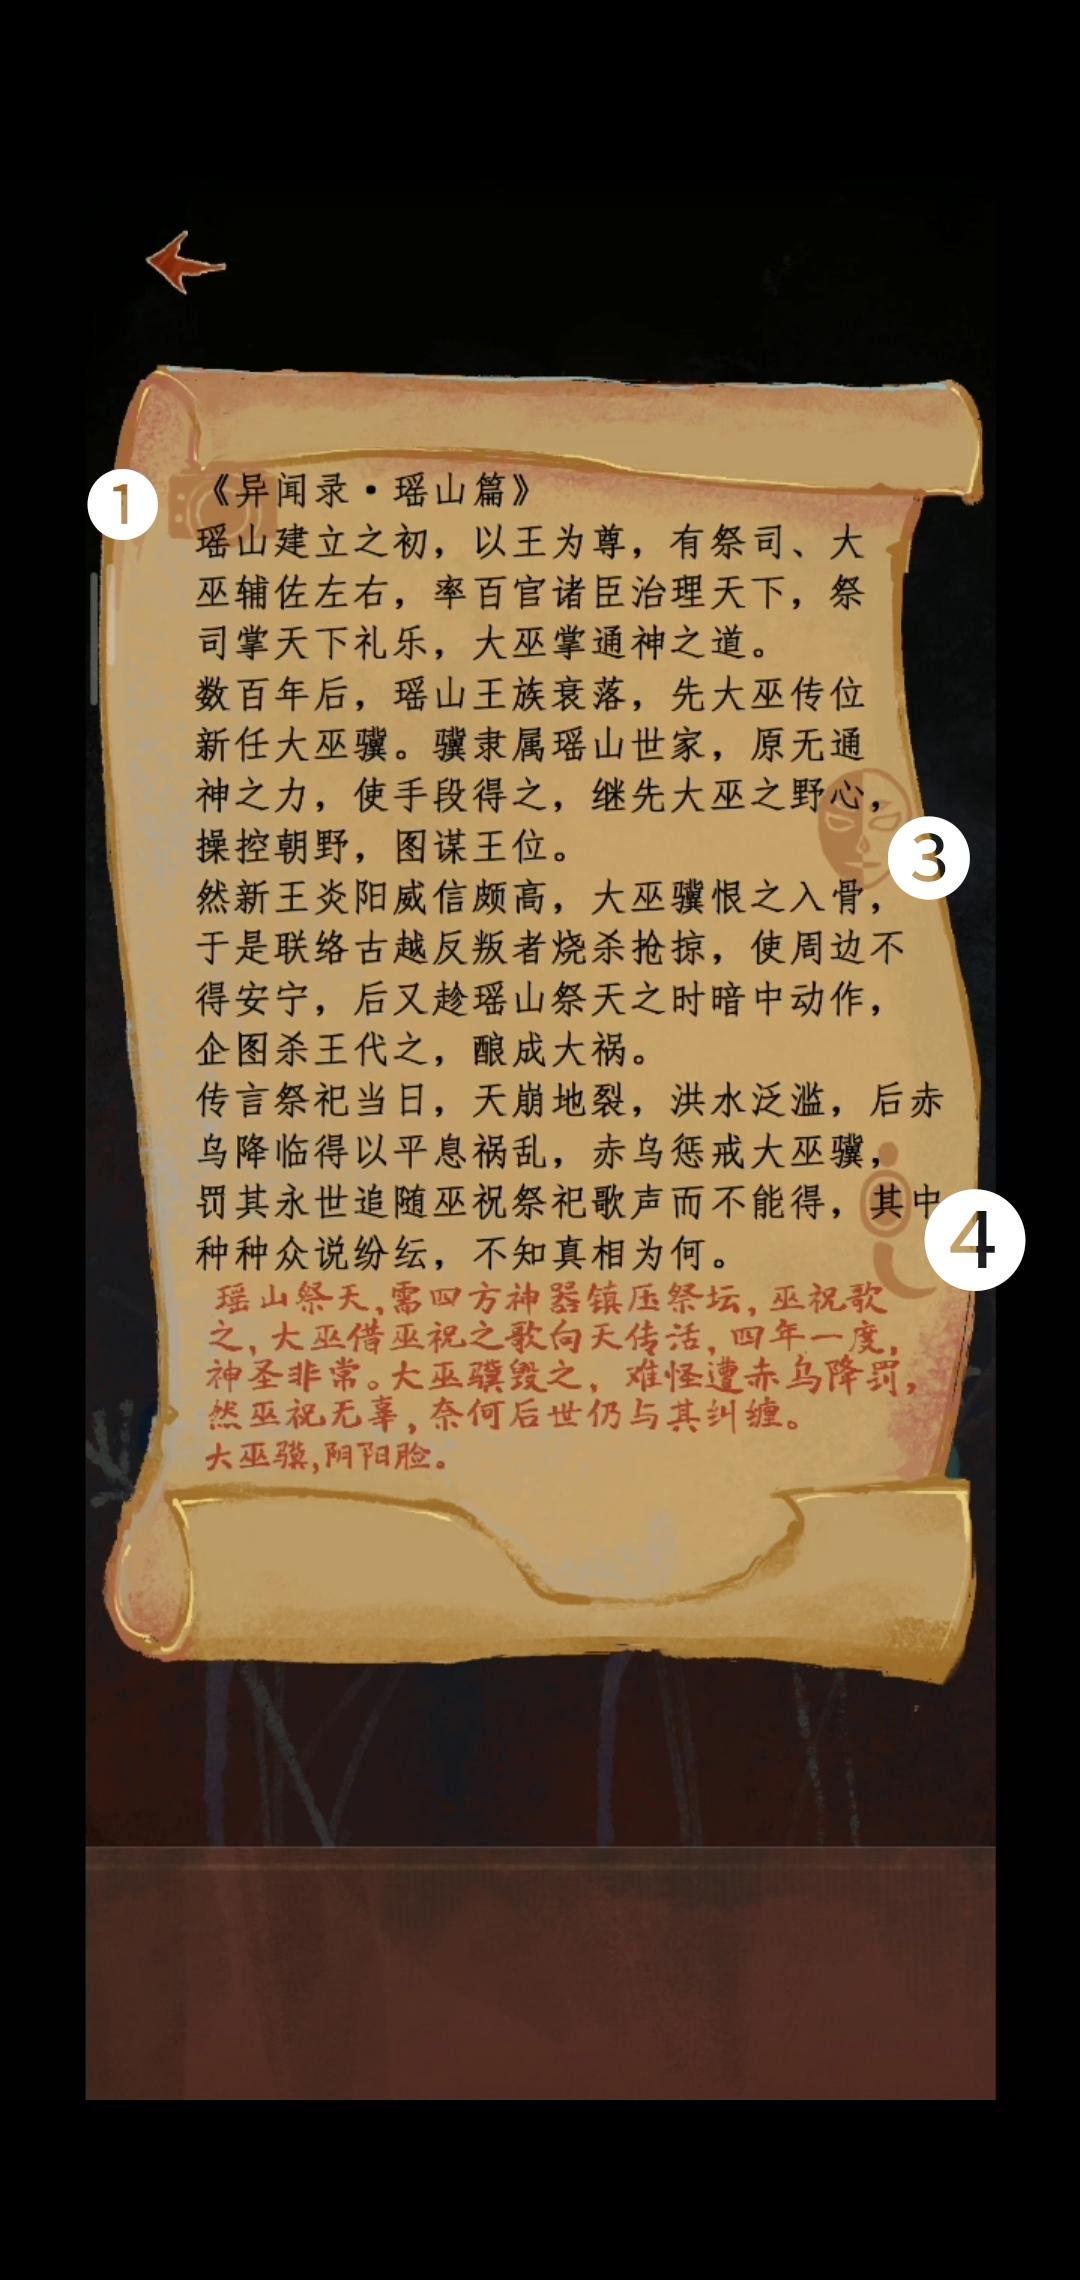 《异闻录·瑶山篇》
1
瑶山建立之初，以王为尊，有祭司、大
巫辅佐左右，率百官诸臣治理天下，祭
司掌天下礼乐，大巫掌通神之道。
数百年后，瑶山王族衰落，先大巫传位
新任大巫骥。骥隶属瑶山世家，原无通
神之力，使手段得之，继先大巫之野心，
操控朝野，图谋王位。
3
然新王炎阳威信颇高，大巫骥恨之入骨，
于是联络古越反叛者烧杀抢掠，使周边不
得安宁，后又趁瑶山祭天之时暗中动作，
企图杀王代之，酿成大祸。
传言祭祀当日，天崩地裂，洪水泛滥，后赤
乌降临得以平息祸乱，赤乌惩戒大巫骥，
罚其永世追随巫祝祭祀歌声而不能得，其中
4
种种众说纷纭，不知真相为何。
瑶山祭天，需四方神器镇压祭坛，巫祝歌
之，大巫借巫祝之歌向天传话，四年一度，
神圣非常。大巫骥毁之，难怪遭赤乌降罚，
然巫祝无辜，奈何后世仍与其纠缠。
大巫骥，阴阳脸。